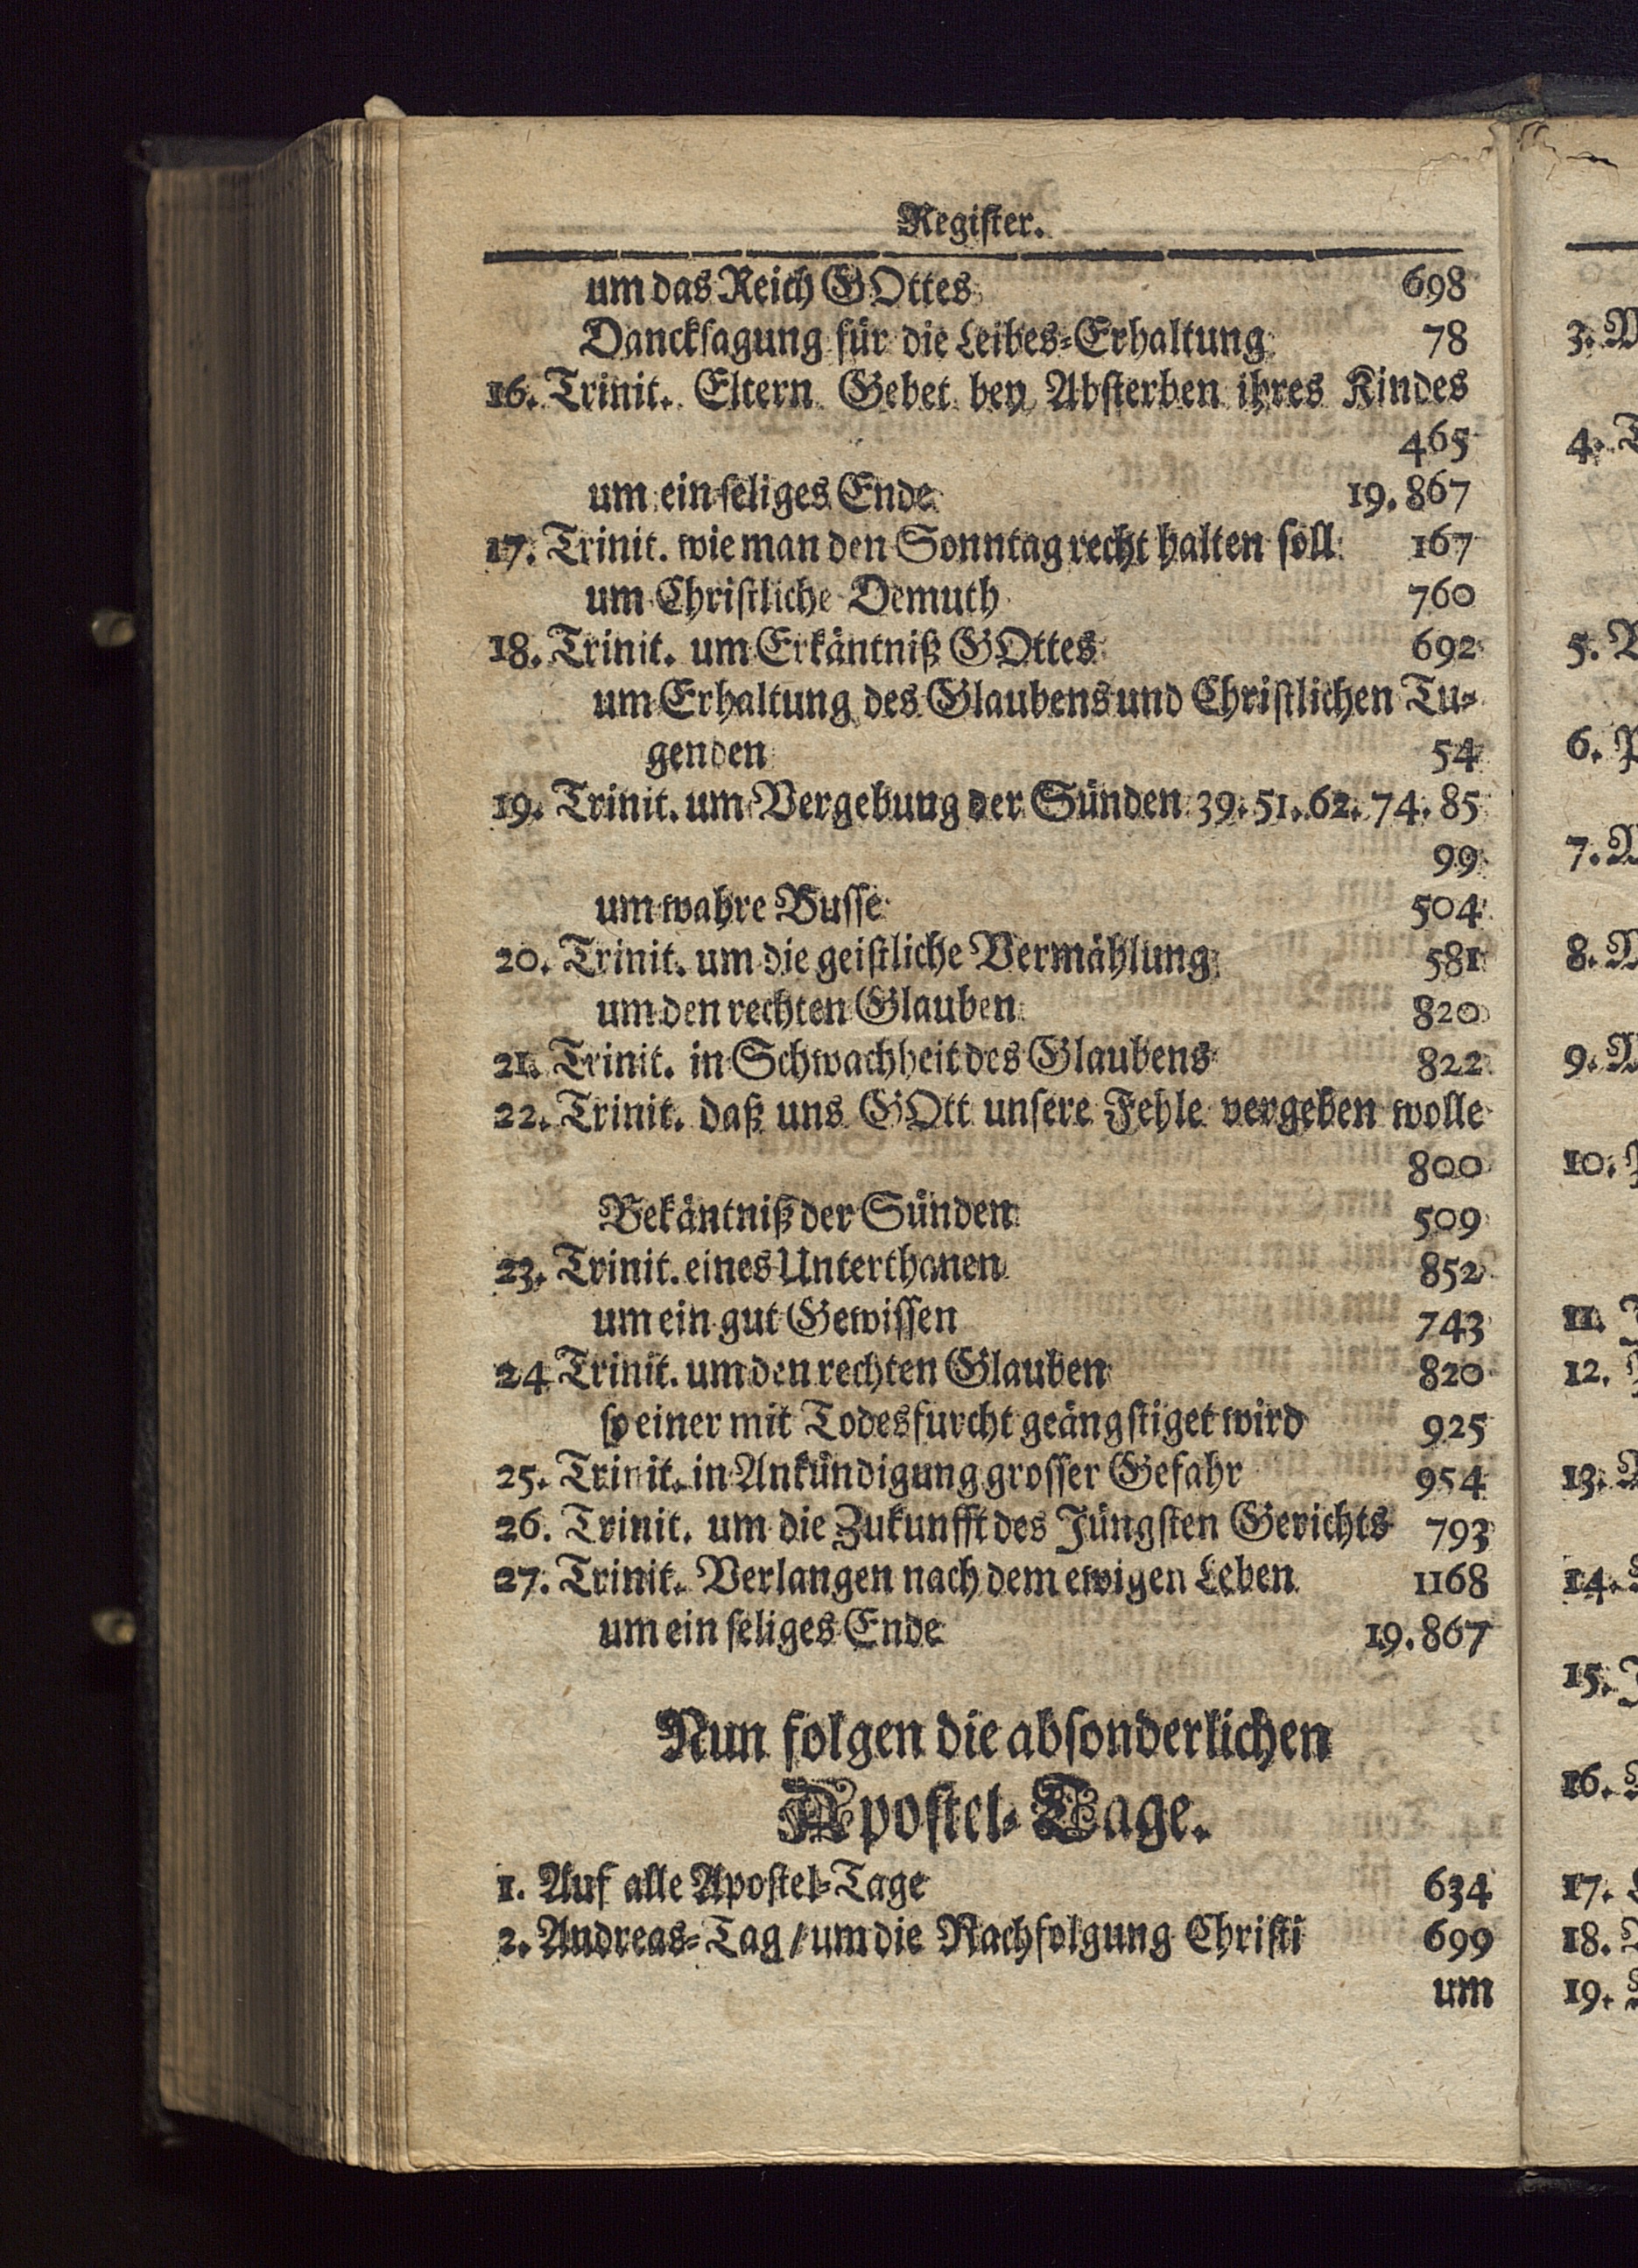 Register.
um das Reich GOttes 698
Dancksagung für die Leibes-Erhaltung 78
16. Trinit. Eltern Gebet bey Absterben ihres Kindes
465
um ein seliges Ende 19. 867
17. Trinit. wie man den Sonntag recht halten soll 167
um Christliche Demuth 760
18. Trinit. um Erkäntniß GOttes 692
um Erhaltung des Glaubens und Christlichen Tu-
genden 54
19. Trinit. um Vergebung der Sünden 39. 51. 62. 74. 85
99
um wahre Busse 504
20. Trinit. um die geistliche Vermählung 581
um den rechten Glauben 820
21. Trinit. in Schwachheit des Glaubens 822
22. Trinit. daß uns GOtt unsere Fehle vergeben wolle
800
Bekäntniß der Sünden 509
23. Trinit. eines Unterthanen 852
um ein gut Gewissen 743
24 Trinit. um den rechten Glauben 820
so einer mit Todesfurcht geängstiget wird 925
25. Trinit. in Ankündigung grosser Gefahr 954
26. Trinit. um die Zukunfft des Jüngsten Gerichts 793
27. Trinit. Verlangen nach dem ewigen Leben 1168
um ein seliges Ende 19. 867
Nun folgen die absonderlichen
Apostel-Tage.
1. Auf alle Apostel-Tage 634
2. Andreas-Tag / um die Nachfolgung Christi 699
um
3.
4.
5.
6.
7.
8.
9.
10.
11.
12.
13.
14.
15.
16.
17.
18.
19.